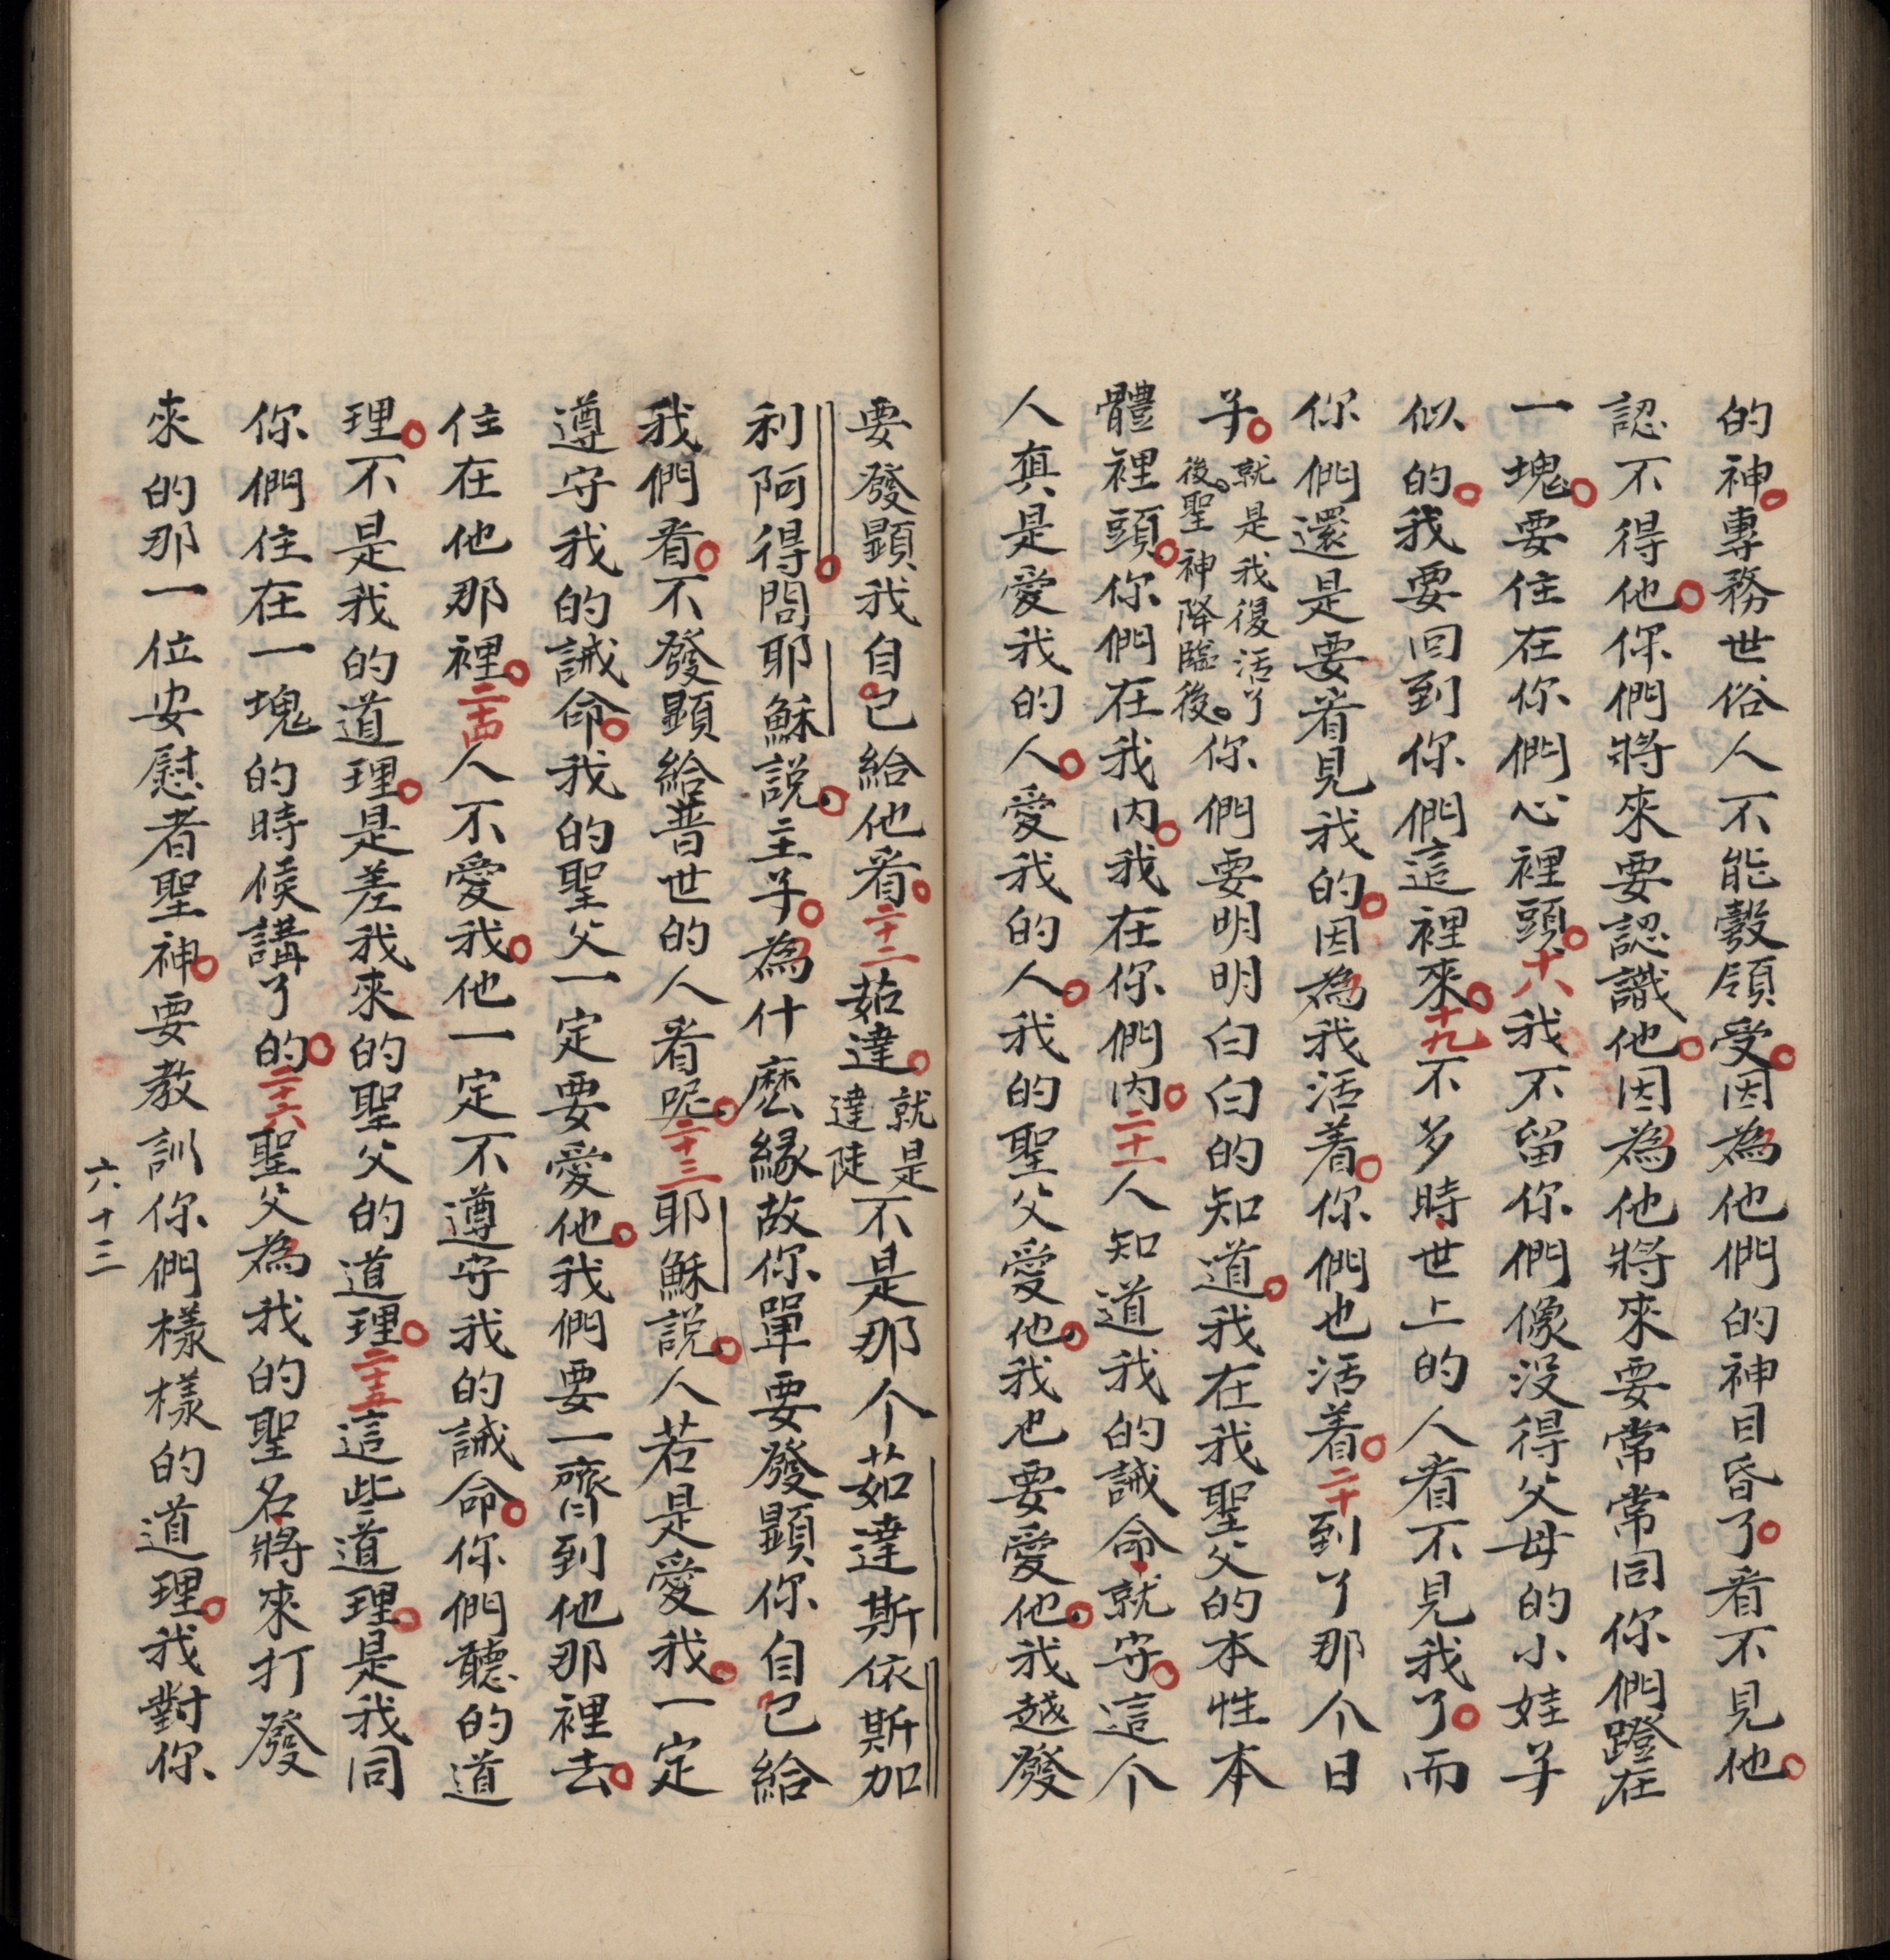 的神。專務世俗人不能彀領受。因為他們的神目昏了。看不見他。
認不得他。你們將來要認識他。因為他將來要常常同你們蹬在
一塊。要住在你們心裡頭。十八我不留你們像没得父母的小娃子
似的。我要回到你們這裡來。十九不多時世上的人看不見我了。而
你們還是要看見我的。因為我活着。你們也活着。二十到了那个日
子。就是我復活了後。聖神降臨後。你們要明明白白的知道。我在我聖父的本性本
體裡頭。你們在我内。我在你們内。二十一人知道我的誡命就守。這个
人真是愛我的人。愛我的人。我的聖父愛他。我也要愛他。我越發
要發顯我自己給他看。二十二茹達。就是達陡不是那个茹達斯依斯加
利阿得。問耶穌説。主子。為什麽緣故你單要發顯你自己給
我們看。不發顯給普世的人看呢。二十三耶穌説。人若是愛我。一定
遵守我的誡命。我的聖父一定要愛他。我們要一齊到他那裡去。
住在他那裡。二十四人不愛我。他一定不遵守我的誡命。你們聽的道
理。不是我的道理。是差我來的聖父的道理。二十五這些道理。是我同
你們住在一塊的時候講了的。二十六聖父為我的聖名將來打發
來的那一位安慰者聖神。要教訓你們樣樣的道理。我對你
六十三